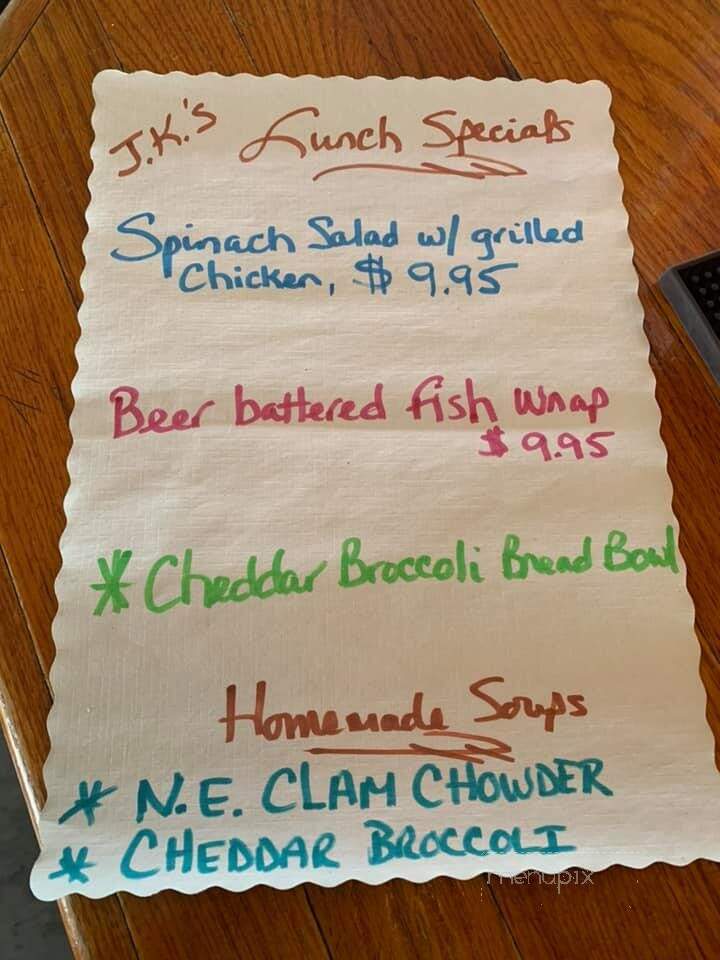 J.K.'s Lunch Specials
Spinach Salad w/ grilled
Chicken, $ 9.95
Beer battered fish wrap
$ 9.95
* Cheddar Broccoli Bread Bowl
Homemade Soups
* N.E. CLAM CHOWDER
* CHEDDAR BROCCOLI
menupix